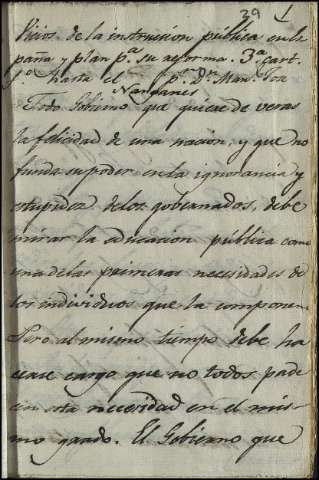 29 1
Vicios de la instruccion pública en Es
paña y plan pª. su reforma. 3ª. cart.
1º. hasta el pr. Dn. Man. Jos
Narganes
Todo Gobierno que quiere de veras
la felicidad de una nacion, y que no
funda su poder en la ignorancia y
estupidez de los gobernados, debe
mirar la educacion pública como
una de las primeras necesidades de
los individuos que la componen.
Pero al mismo tiempo debe ha
cerse cargo que no todos pade
cen esta necesidad en el mis
mo grado. El Gobierno que